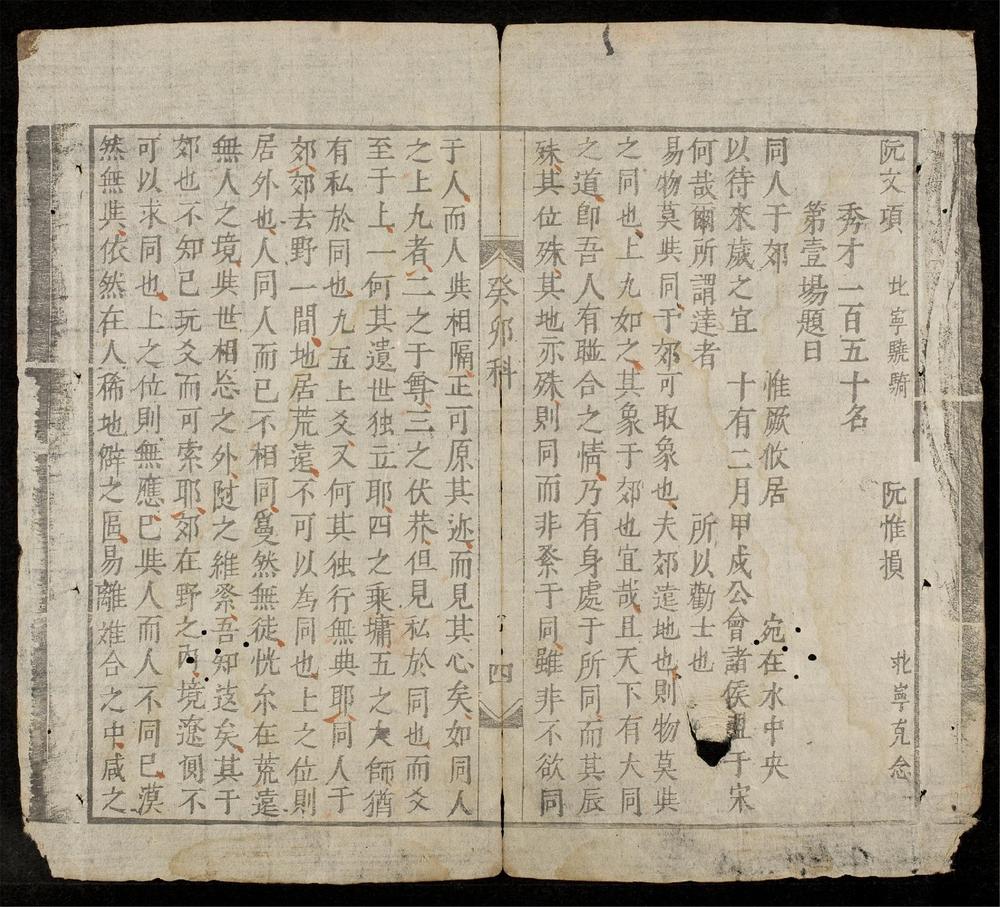 阮文項 北寧驍騎 阮惟損 北寧克念
秀才一百五十名
第壹場題曰
同人于郊 惟厥攸居 宛在水中央
以待來歲之宜 十有二月甲戍公會諸侯盟于宋
何哉爾所謂達者 所以勸士也
易物莫與同于郊可取象也夫郊遠地也則物莫與
之同也上九如之其象于郊也宜哉且天下有大同
之道卽吾人有聯合之情乃有身處于所同而其辰
殊其位殊其地亦殊則同而非系于同雖非不欲同
癸卯科 四
于人而人與相隔正可原其迹而見其心矣如同人
之上九者二之于尊三之伏莽但見私於同也而爻
至于上一何其遺世独立耶四之乗墉五之大師猶
有私於同也九五上爻又何其独行無與耶同人于
郊郊去野一間地居荒遠不可以為同也上之位則
居外也人同人而已不相同夐然無徒恍尒在荒遠
無人之境與世相忘之外陡之維系吾知茇矣其于
郊也不知已玩爻而可索耶郊在野之内境遼側不
可以求同也上之位則無應已與人而人不同已漠
然無與依然在人稀地僻之區易離难合之中咸之